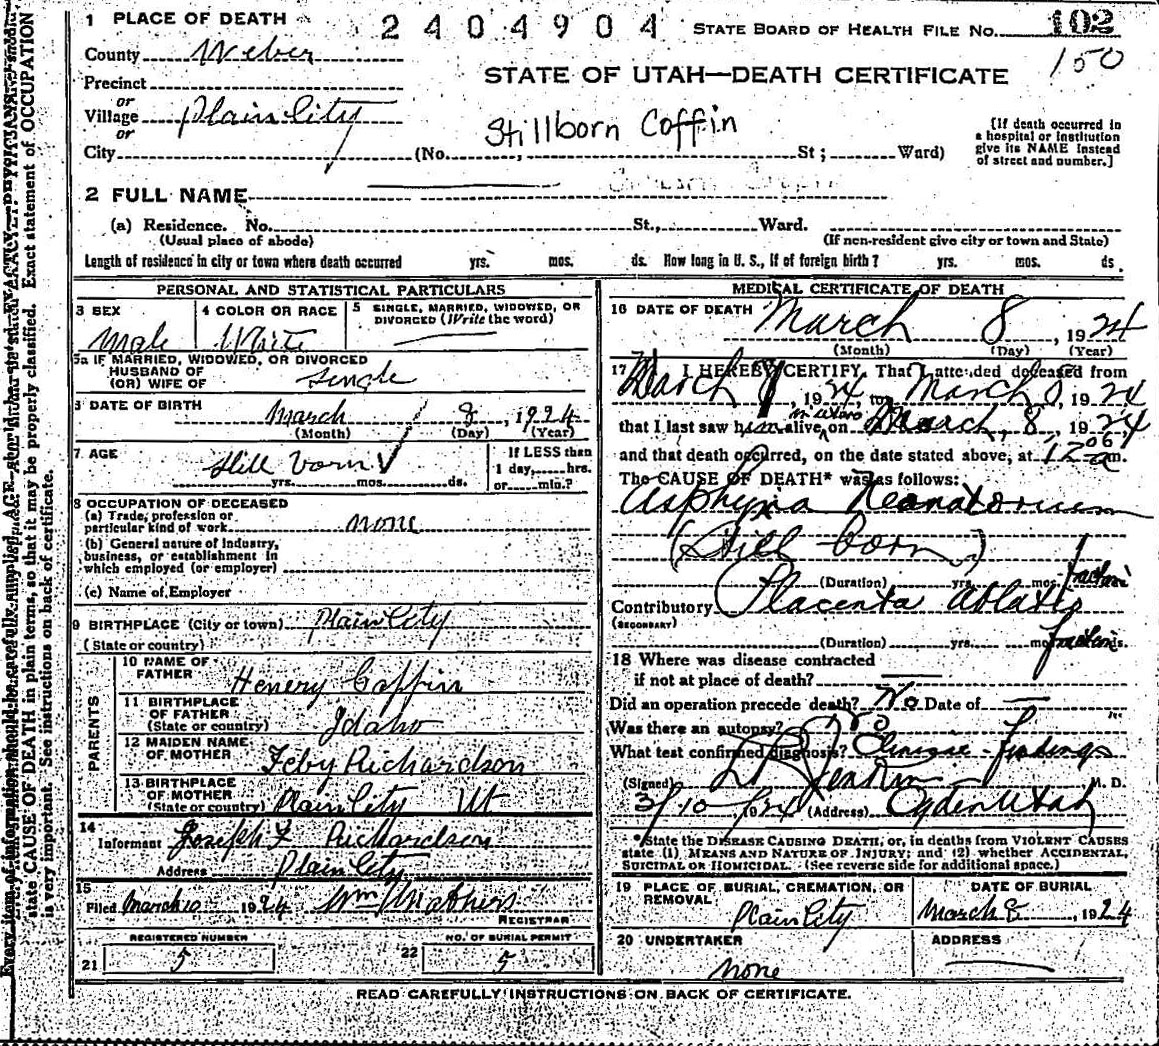 1 PLACE OF DEATH 2404904 STATE BOARD OF HEALTH FILE No. 102
County Weber 150
STATE OF UTAH—DEATH CERTIFICATE
Precinct
or
Village Plain City
or
Stillborn Coffin
City (No. , St; Ward)
[If death occurred in
a hospital or institution
give its NAME instead
of street and number.]
2 FULL NAME
(a) Residence. No. St., Ward.
(Usual place of abode) (If non-resident give city or town and State)
Length of residence in city or town where death occurred yrs. mos. ds. How long in U. S., if of foreign birth? yrs. mos. ds.
PERSONAL AND STATISTICAL PARTICULARS
3 SEX 4 COLOR OR RACE 5 SINGLE, MARRIED, WIDOWED, OR
DIVORCED (Write the word)
Male White
5a IF MARRIED, WIDOWED, OR DIVORCED
HUSBAND OF
(OR) WIFE OF single
DATE OF BIRTH March 8, 1924
(Month) (Day) (Year)
7 AGE Still born
If LESS than
1 day, hrs.
or min.?
yrs. mos. ds.
8 OCCUPATION OF DECEASED
(a) Trade, profession or
particular kind of work none
(b) General nature of industry,
business, or establishment in
which employed (or employer)
(c) Name of Employer
9 BIRTHPLACE (City or town) Plain City
(State or country)
PARENTS
10 NAME OF
FATHER Henery Coffin
11 BIRTHPLACE
OF FATHER
(State or country) Idaho
12 MAIDEN NAME
OF MOTHER Feby Richardson
13 BIRTHPLACE
OF MOTHER
(State or country) Plain City Ut
14
Informant Joseph F Richardson
Address Plain City
15
Filed March 10 1924 Wm
REGISTRAR
REGISTERED NUMBER NO. OF BURIAL PERMIT
21 5 22 5
MEDICAL CERTIFICATE OF DEATH
16 DATE OF DEATH March 8, 1924
(Month) (Day) (Year)
17 I HEREBY CERTIFY, That I attended deceased from
March 8, 1924, to March 8, 1924
in utero
that I last saw him alive on March, 8, 1924
and that death occurred, on the date stated above, at 12 06 a m.
The CAUSE OF DEATH* was as follows:
Asphyxia Neonatorium
(Still born)
(Duration) yrs. mos.
Contributory Placenta
(SECONDARY)
(Duration) yrs. mos. ds.
18 Where was disease contracted
if not at place of death?
Did an operation precede death? No Date of
Was there an autopsy? No
What test confirmed diagnosis? Clinical findings
(Signed) Jenkins M. D.
3/10 1924 (Address) Ogden Utah
*State the DISEASE CAUSING DEATH, or, in deaths from VIOLENT CAUSES
state (1) MEANS AND NATURE OF INJURY; and (2) whether ACCIDENTAL,
SUICIDAL OR HOMICIDAL. (See reverse side for additional space.)
19 PLACE OF BURIAL, CREMATION, OR
REMOVAL DATE OF BURIAL
Plain City March 8, 1924
20 UNDERTAKER ADDRESS
none
READ CAREFULLY INSTRUCTIONS ON BACK OF CERTIFICATE.
state CAUSE OF DEATH in plain terms, so that it may be properly classified. Exact statement of OCCUPATION
is very important. See instructions on back of certificate.